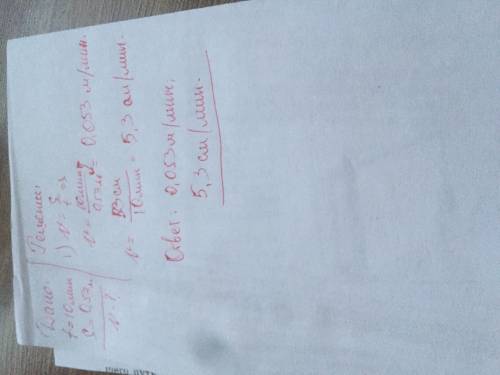 Дано:
t=10мин
S=0,53м
v-?
Решение:
1) v=S/t=>
v=10мин/0,53м=0,053 м/мин.
v=53см/10мин=5,3 см/мин.
Ответ: 0,053 м/мин;
5,3 см/мин.